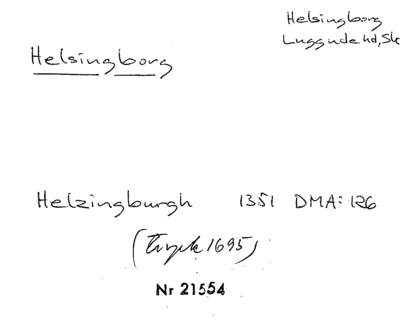 Helsingborg
Luggude hd, Sk
Helsingborg
Helzingburgh 1351 DMA: 126
(Tryck 1695)
Nr 21554